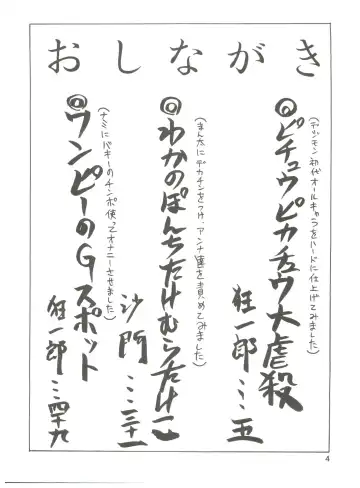 おしながき
◎ピチュウピカチュウ大虐殺
(デジモン初代オールキャラをハードに仕上げてみました)
狂一郎…五
◎わかのぽんちたけむらたけ一
(まん太にデカチンをつけ、アンナ達を責めてみました)
沙門…三十一
◎ワンピーのGスポット
(ナミにバギーのチンポ使ってオナニーさせました)
狂一郎…四十九
4